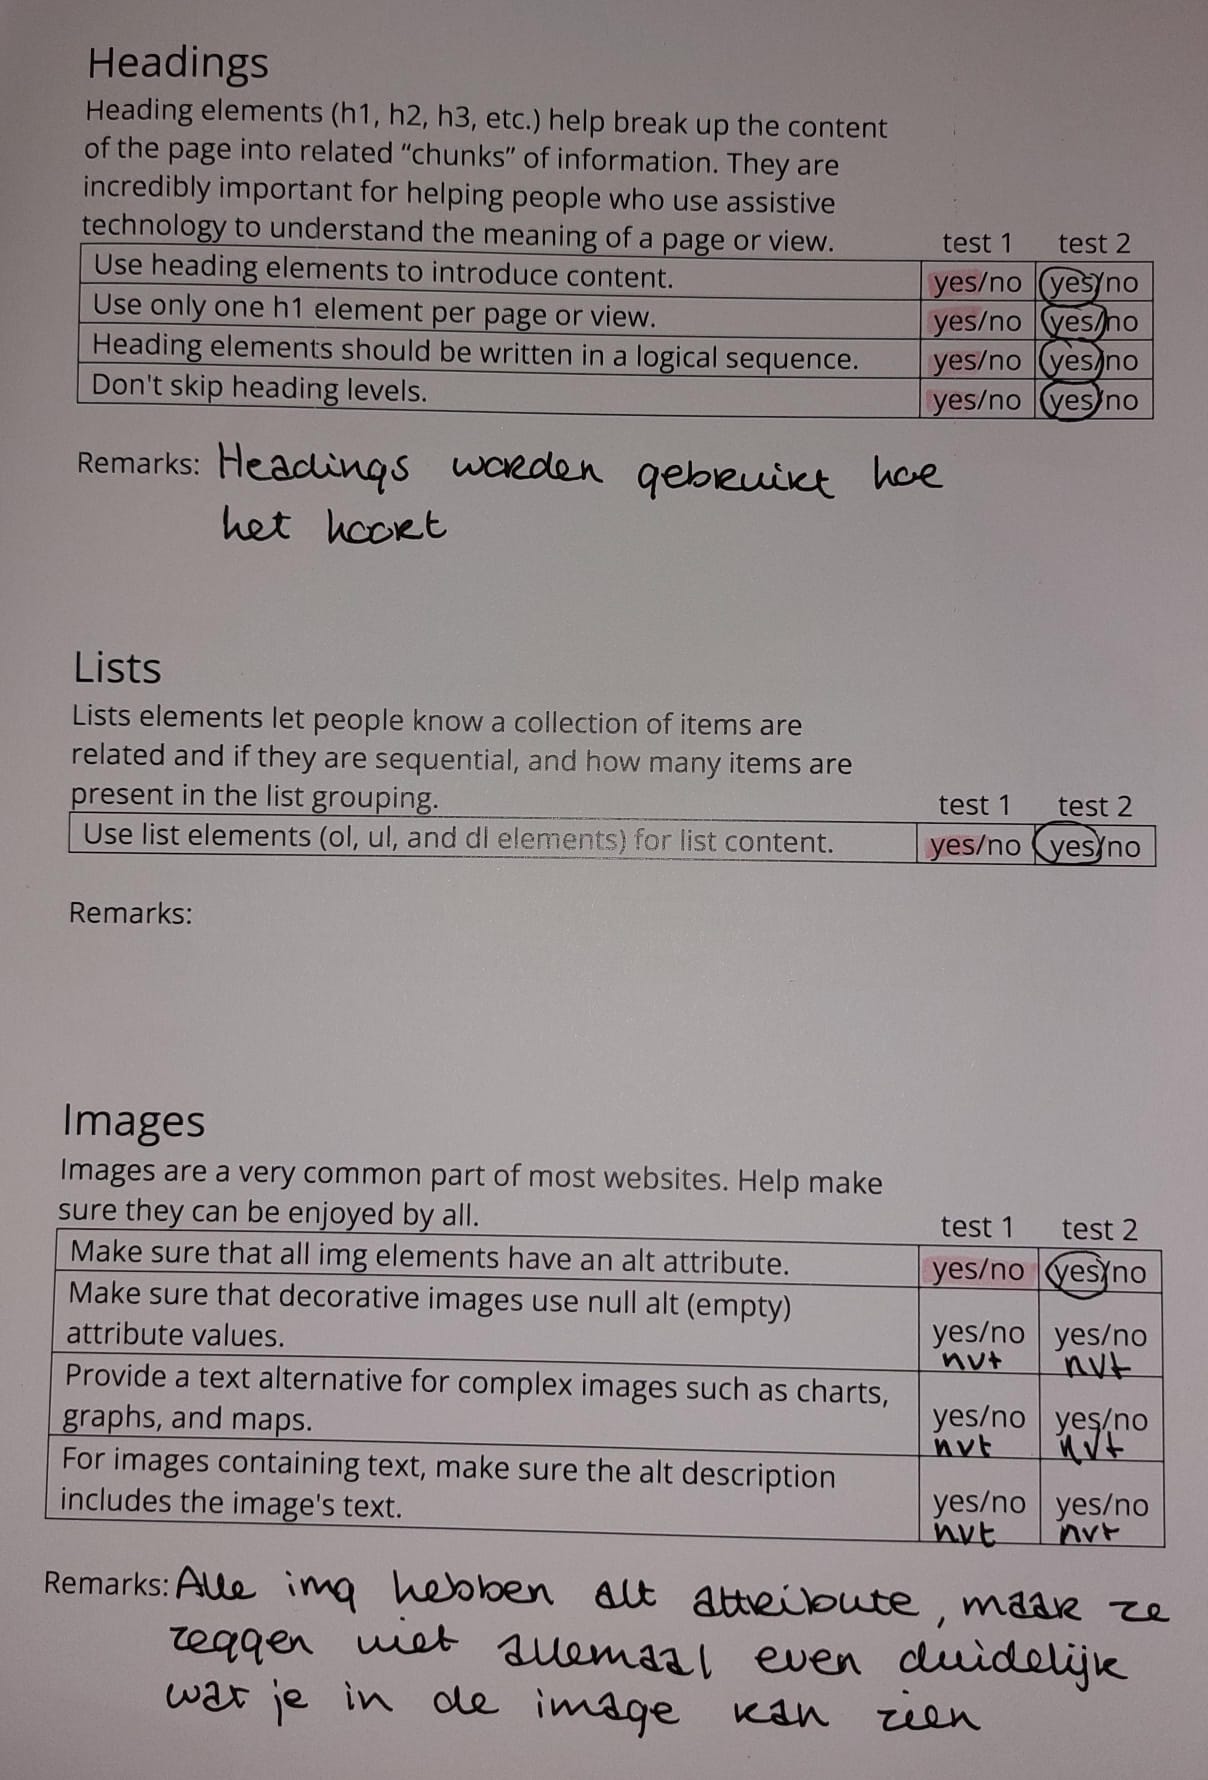 Headings
Heading elements (h1, h2, h3, etc.) help break up the content
of the page into related “chunks” of information. They are
incredibly important for helping people who use assistive
technology to understand the meaning of a page or view. test 1 test 2
Use heading elements to introduce content. yes/no yes/no
Use only one h1 element per page or view. yes/no yes/no
Heading elements should be written in a logical sequence. yes/no yes/no
Don't skip heading levels. yes/no yes/no
Remarks: Headings worden gebruikt hoe
het hoort
Lists
Lists elements let people know a collection of items are
related and if they are sequential, and how many items are
present in the list grouping. test 1 test 2
Use list elements (ol, ul, and dl elements) for list content. yes/no yes/no
Remarks:
Images
Images are a very common part of most websites. Help make
sure they can be enjoyed by all. test 1 test 2
Make sure that all img elements have an alt attribute. yes/no yes/no
Make sure that decorative images use null alt (empty)
attribute values. yes/no yes/no
nvt nvt
Provide a text alternative for complex images such as charts,
graphs, and maps. yes/no yes/no
nvt nvt
For images containing text, make sure the alt description
includes the image's text. yes/no yes/no
nvt nvt
Remarks: Alle img hebben alt attribute, maar ze
zeggen niet allemaal even duidelijk
wat je in de image kan zien